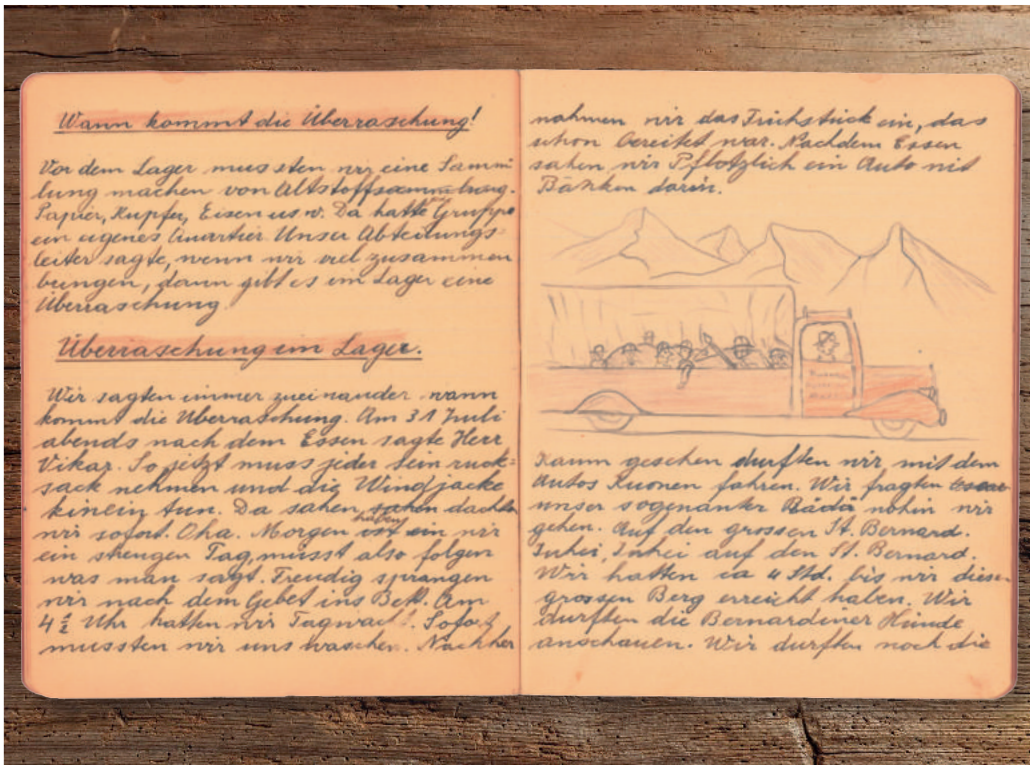 Wann kommt die Überraschung!
Vor dem Lager mussten wir eine Samm-
lung machen von Altstoffsammlung.
Papier, Kupfer, Eisen us w. Da hatte Gruppe
ein eigenes Quartier. Unser Abteilungs-
leiter sagte, wenn wir viel zusammen
bringen, dann gibt es im Lager eine
Überraschung.
Überraschung im Lager.
Wir sagten immer zueinander, wann
kommt die Überraschung. Am 31 Juli
abends nach dem Essen sagte Herr
Vikar. So jetzt muss jeder sein ruck-
sack nehmen und die Windjacke
hinein tun. Da sahen sahen dachten
wir sofort. Oha. Morgen ist ein haben wir
ein strengen Tag, müsst also folgen
was man sagt. Freudig sprangen
wir nach dem Gebet ins Bett. Am
4 ½ Uhr hatten wir Tagwach. Sofort
mussten wir uns waschen. Nachher
nahmen wir das Frühstück ein, das
schon bereitet war. Nachdem Essen
sahen wir Pflotzlich ein Auto mit
Bänken darin.
Kaum gesehen durften wir mit dem
Autos Kuonen fahren. Wir fragten
unser sogenanter Bädä wohin wir
gehen. Auf den grossen St. Bernard.
Juhei, Juhei auf den St. Bernard.
Wir hatten ca 4 Std. bis wir diesen
grossen Berg erreicht haben. Wir
durften die Bernardiner Hunde
anschauen. Wir durften noch die